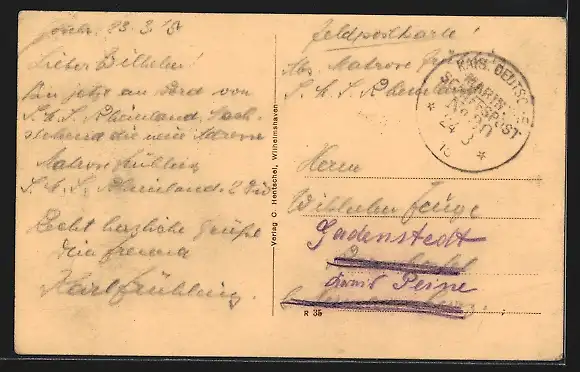 23.3.15
Lieber Wilhelm!
Bin jetzt an Bord von
S.M.S. Rheinland. Nach-
stehend die neue Adresse
Matrose Frühling
S.M.S. Rheinland. 2 Div
Recht herzliche Grüße
Dein Freund
Karl Frühling.
Verlag C. Hentschel, Wilhelmshaven
Feldpostkarte!
Abs. Matrose Frühling
S.M.S. Rheinland
KAIS. DEUTSCHE
MARINE-
SCHIFFSPOST
No
24 3
15
Herrn
Wilhelm
Gadenstedt
Peine
R 35